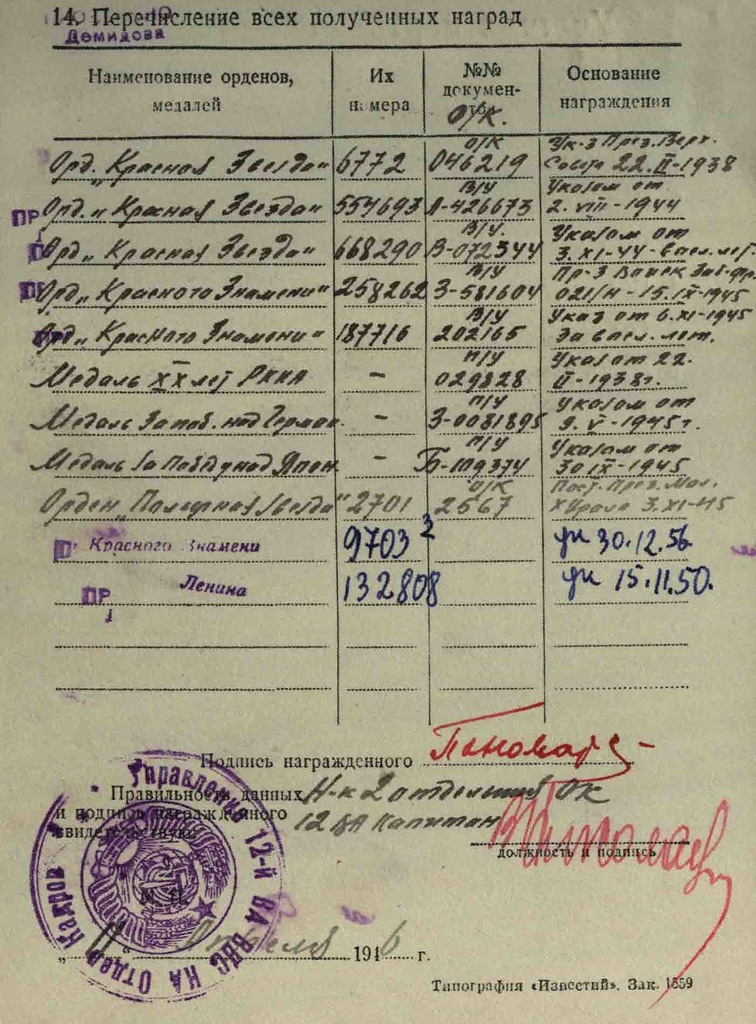 14. Перечисление всех полученных наград
Демидова
Наименование орденов, медалей
Их номера
№№ документов
О/К.
Основание награждения
Орд. "Красная Звезда" 6772 О/К 046219 Ук-з През. Верх. Совета 22.II-1938
ПР Орд. "Красная Звезда" 554693 В/У А-426673 Указом от 2.VIII-1944
Орд. "Красная Звезда" 668290 В/У. В-072344 Указом от 3.XI-44
ПР Орд. "Красного Знамени" 258262 В/У З-581604 Пр-з 021/Н-15.IX-1945
Орд. "Красного Знамени" 187716 В/У 202165 Указ от 6.XI-1945 За высл. лет.
Медаль XX лет РККА - П/У 029828 Указ от 22. II-1938г.
Медаль За поб. над Герман. - П/У З-0081895 Указом от 9.V-1945г.
Медаль За Победу над Япон. - П/У Б-109374 Указом от 30 IX-1945
Орден "Полярная Звезда" 2701 О/К 2567 Пост. През. Мал. Хурала 3.XI-45
Красного Знамени 9703 2 ук 30.12.56
ПР Ленина 132808 ук 15.11.50.
1
Подпись награжденного Пономар
Правильность данных
и подпись награжденного
свидетельствую
Н-к 2 отделения ОК
12 ВА капитан
должность и подпись
Отдел Кадров Управления 12-й ВА ВВС КА
М. П.
"11" Апреля 1946 г.
Типография «Известий». Зак. 1559